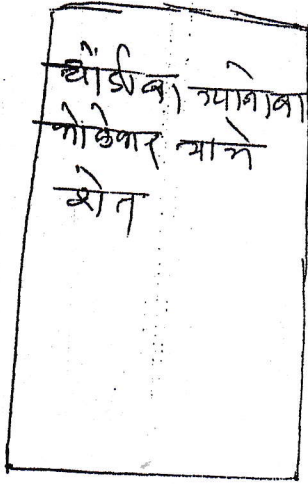 धोंडीबा ग्यानोबा
कोळेकर याचे
शेत